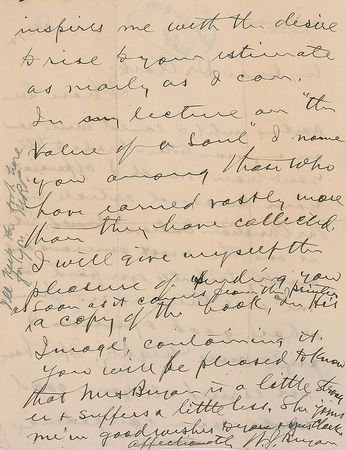 inspires me with the desire
to rise to your estimate
as nearly as I can.
In my lecture on "the
Value of a Soul" I name
you among those who
have earned vastly more
than they have collected.
I will give myself the
pleasure of sending you
as soon as it comes from the printer
a copy of the book, "In His
Image," containing it.
You will be pleased to know
that Mrs Bryan is a little strong
er & suffers a little less. She joins
me in good wishes to you &
affectionately W. J. Bryan